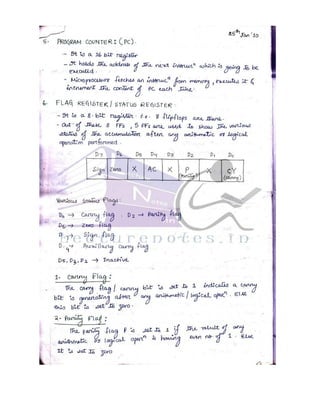 25th Jan '20
5. PROGRAM COUNTER I (PC).
- It is a 16 bit register
- It holds the address of the next instrucn which is going to be
executed.
- Microprocessor fetches an instrucn from memory, executes it &
increment the content of PC each time.
6. FLAG REGISTER / STATUS REGISTER:
- It is a 8-bit register. i.e. 8 flipflops are there.
- Out of these 8 FFs, 5 FFs are used to show the various
status of the accumulator after any arithmetic or logical
operation performed.
D7 D6 D5 D4 D3 D2 D1 D0
Sign Zero X AC X P X CY
(Parity) (carry)
Various status Flags:
D0 → Carry flag. D2 → Parity flag
D6 → Zero flag
D7 → Sign flag
D4 → Auxiliary Carry flag
D5, D3, D1 → Inactive
1. Carry Flag:
The carry flag / carry bit is set to 1 indicates a carry
bit is generating after any arithmetic / logical opern. Else
this bit is set to zero.
2. Parity Flag:
The parity flag P is set to 1 if the result of any
arithmatic or logical opern is having even no of 1. Else
It is set to zero
lecturenotes.in